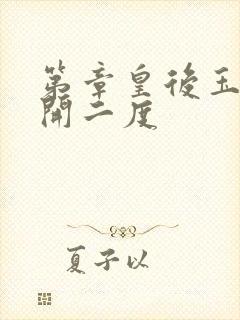 第章皇後玉
開二度
夏子以